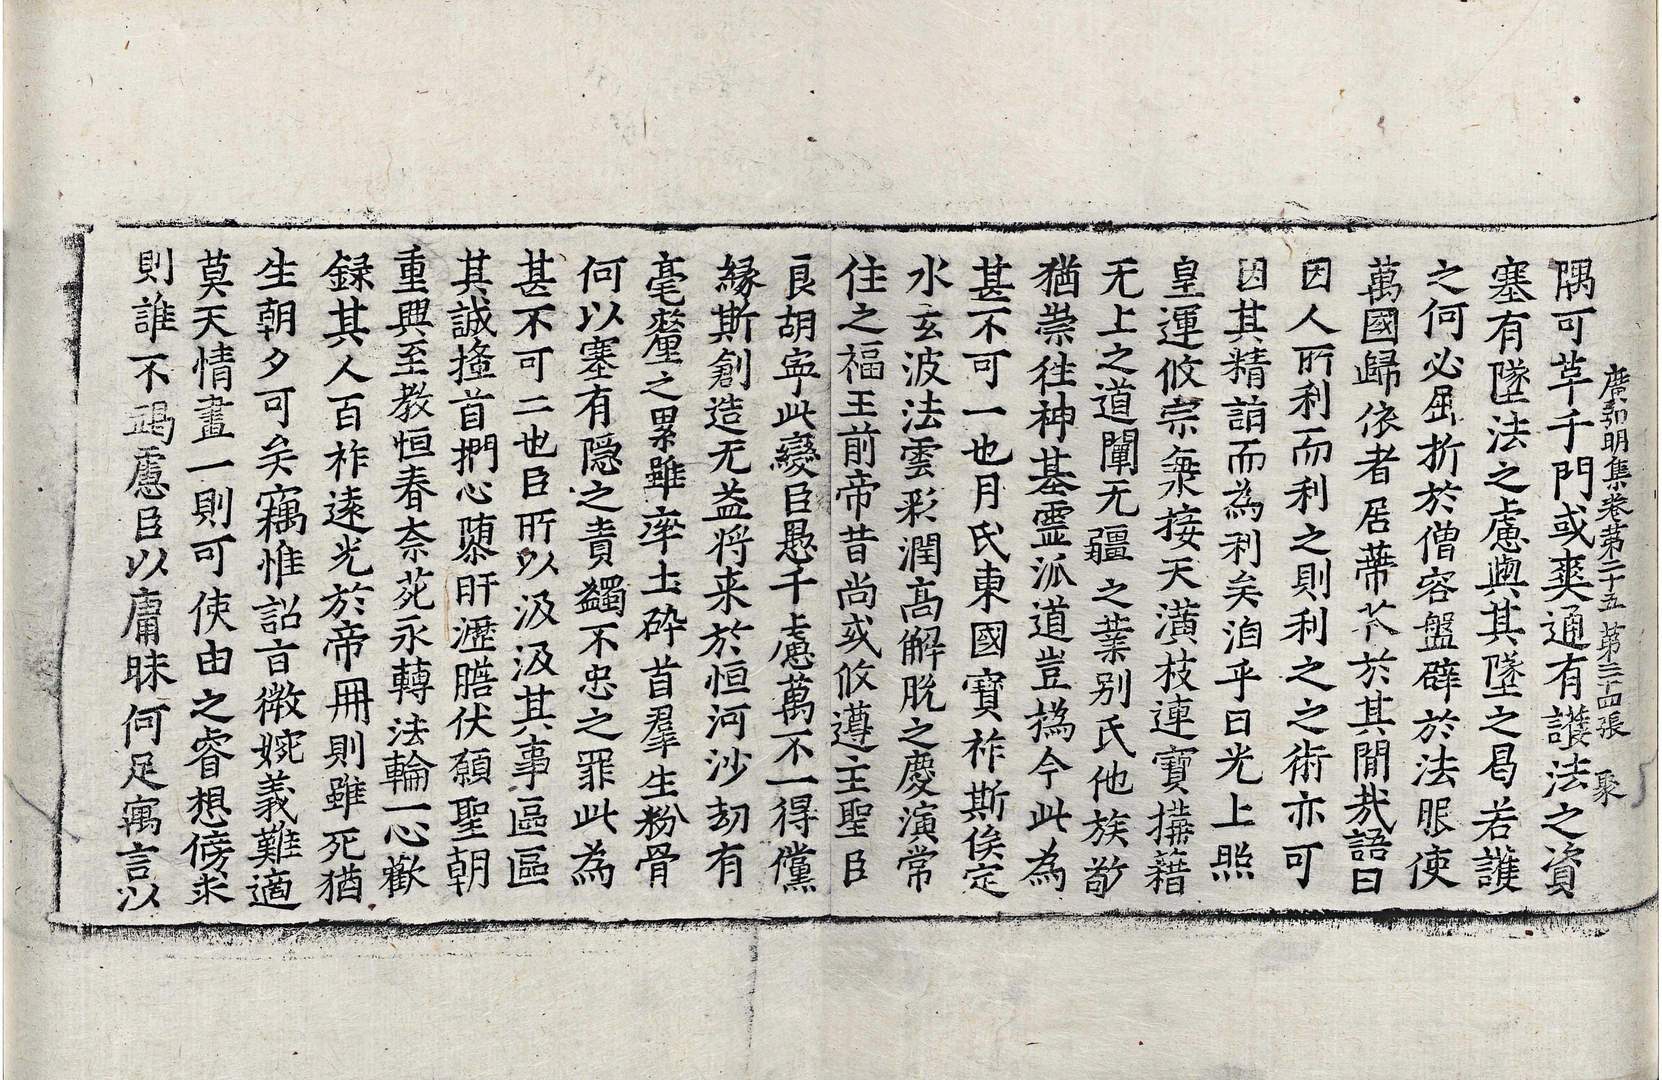 廣弘明集卷第二十五 第三十四張 聚
隅可草千門或爽通有護法之資
塞有墜法之慮與其墜之曷若護
之何必屈折於僧容盤辟於法服使
萬國歸依者居蔕芥於其間哉語曰
因人所利而利之則利之之術亦可
因其精詣而為利矣洎乎日光上照
皇運攸宗乗接天潢枝連寶構籍
无上之道闡无疆之業别氏他族敬
猶崇往神基靈派道豈撝今此為
甚不可一也月氏東國寶祚斯俟定
水玄波法雲彩潤高解脫之慶演常
住之福王前帝昔尚或攸遵主聖臣
良胡寧此變臣愚千慮萬不一得儻
緣斯創造无益将来於恒河沙劫有
毫釐之累雖率土碎首羣生粉骨
何以塞有隠之責蠲不忠之罪此為
甚不可二也臣所以汲汲其事區區
其誠搔首捫心隳肝瀝膽伏願聖朝
重興至教恒春奈苑永轉法輪一心歡
録其人百祚遠光於帝冊則雖死猶
生朝夕可矣竊惟詔旨微婉義難適
莫天情畫一則可使由之睿想傍求
則誰不竭慮臣以庸昧何足寓言以